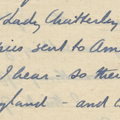 Lady Chatterley
sent to Am
I hear - so the
gland - and